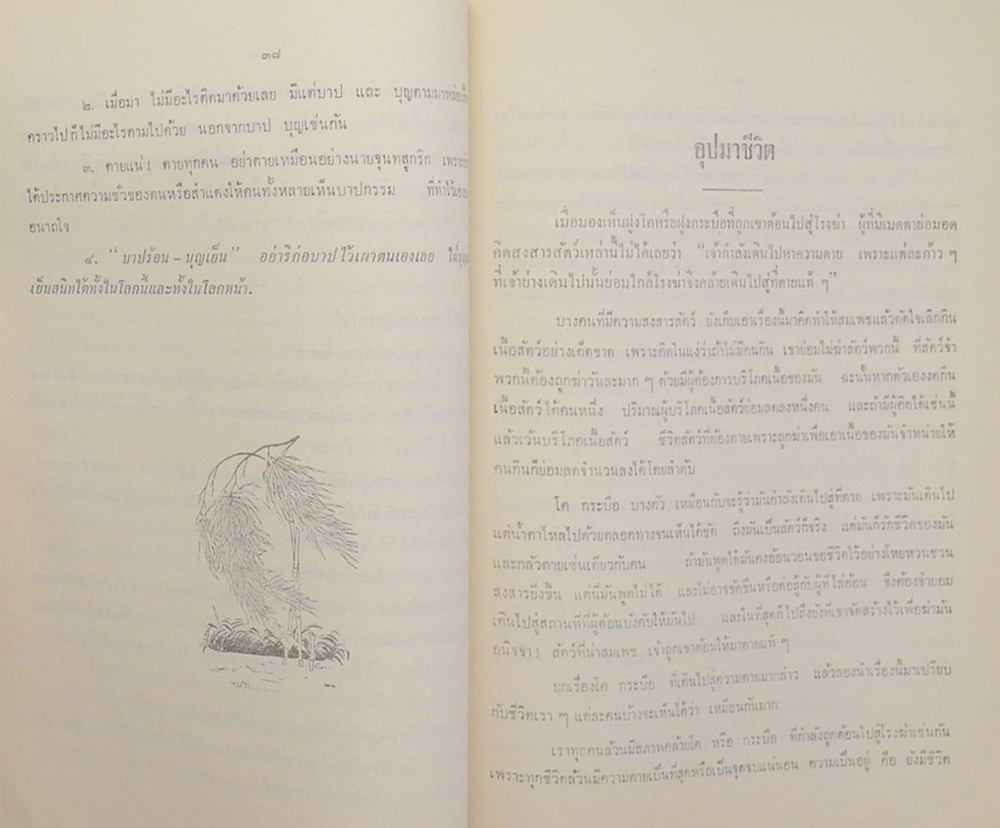 ๓๘
๒. เมื่อมา ไม่มีอะไรติดมาด้วยเลย มีแต่บาป และ บุญตามมา
คราวไปก็ไม่มีอะไรตามไปด้วย นอกจากบาป บุญเช่นกัน
๓. ตายแน่! ตายทุกคน อย่าตายเหมือนอย่างนายจุนทสูกริก
ได้ประกาศความชั่วของตนหรือสำแดงให้คนทั้งหลายเห็นบาปกรรม ที่ทำไว้
อนาถใจ
๔. “บาปร้อน – บุญเย็น” อย่าริก่อบาปไว้เผาตนเองเลย
เย็นสนิทได้ทั้งในโลกนี้และทั้งในโลกหน้า.
อุปมาชีวิต
เมื่อมองเห็นฝูงโคหรือฝูงกระบือที่ถูกเขาต้อนไปสู่โรงฆ่า ผู้ที่มีเมตตาย่อมอด
คิดสงสารสัตว์เหล่านี้ไม่ได้เลยว่า “เจ้ากำลังเดินไปหาความตาย เพราะแต่ละก้าว ๆ
ที่เจ้าย่างเดินไปนั้นย่อมใกล้โรงฆ่าจึงคล้ายเดินไปสู่ที่ตายแท้ ๆ”
บางคนที่มีความสงสารสัตว์ ยังเก็บเอาเรื่องนี้มาคิดทำให้สมเพชแล้วตัดใจเลิกกิน
เนื้อสัตว์อย่างเด็ดขาด เพราะคิดในแง่ว่าถ้าไม่มีคนกิน เขาย่อมไม่ฆ่าสัตว์พวกนี้ ที่สัตว์จำ
พวกนี้ต้องถูกฆ่าวันละมาก ๆ ด้วยมีผู้ต้องการบริโภคเนื้อของมัน ฉะนั้นหากตัวเองงดกิน
เนื้อสัตว์ได้คนหนึ่ง ปริมาณผู้บริโภคเนื้อสัตว์ย่อมลดลงหนึ่งคน และถ้ามีผู้คิดได้เช่นนี้
แล้วเว้นบริโภคเนื้อสัตว์ ชีวิตสัตว์ที่ต้องตายเพราะถูกฆ่าเพื่อเอาเนื้อของมันจำหน่ายให้
คนกินก็ย่อมลดจำนวนลงได้โดยลำดับ
โค กระบือ บางตัว เหมือนกับจะรู้ว่ามันกำลังเดินไปสู่ที่ตาย เพราะมันเดินไป
แต่น้ำตาไหลไปด้วยตลอดทางจนเห็นได้ชัด ถึงมันเป็นสัตว์ก็จริง แต่มันก็รักชีวิตของมัน
และกลัวตายเช่นเดียวกับคน ถ้ามันพูดได้มันคงอ้อนวอนขอชีวิตไว้อย่างโหยหวนชวน
สงสารยิ่งขึ้น แต่นี่มันพูดไม่ได้ และไม่อาจขัดขืนหรือต่อสู้กับผู้ที่ไล่ต้อน จึงต้องจำยอม
เดินไปสู่สถานที่ที่ผู้ต้อนบังคับให้มันไป และในที่สุดก็ไปถึงยังที่เขาจัดสร้างไว้เพื่อฆ่ามัน
อนิจจา! สัตว์ที่น่าสมเพช เจ้าถูกเขาต้อนให้มาตายแท้ ๆ
ยกเรื่องโค กระบือ ที่เดินไปสู่ความตายมากล่าว แล้วลองนำเรื่องนี้มาเปรียบ
กับชีวิตเรา ๆ แต่ละคนบ้างจะเห็นได้ว่า เหมือนกันมาก
เราทุกคนล้วนมีสภาพคล้ายโค หรือ กระบือ ที่กำลังถูกต้อนไปสู่โรงฆ่าเช่นกัน
เพราะทุกชีวิตล้วนมีความตายเป็นที่สุดหรือเป็นจุดจบแน่นอน ความเป็นอยู่ คือ ยังมีชีวิต